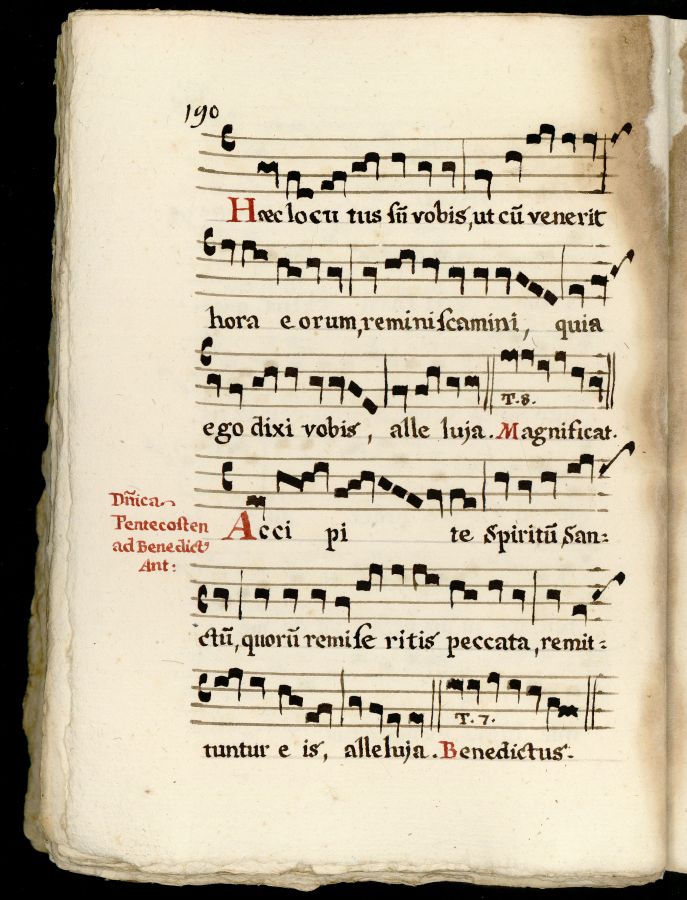 190
Hæc locu tus sũ vobis, ut cũ venerit
hora e orum, reminiscamini, quia
T. 8.
ego dixi vobis, alle luja. Magnificat.
Dñica
Pentecosten
ad Benedictꝰ
Ant:
Acci pi te Spiritũ San:
ctũ, quorũ remise ritis peccata, remit:
T. 7.
tuntur e is, alleluja. Benedictus.